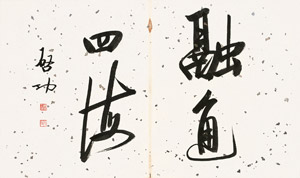 融通
四海
启功